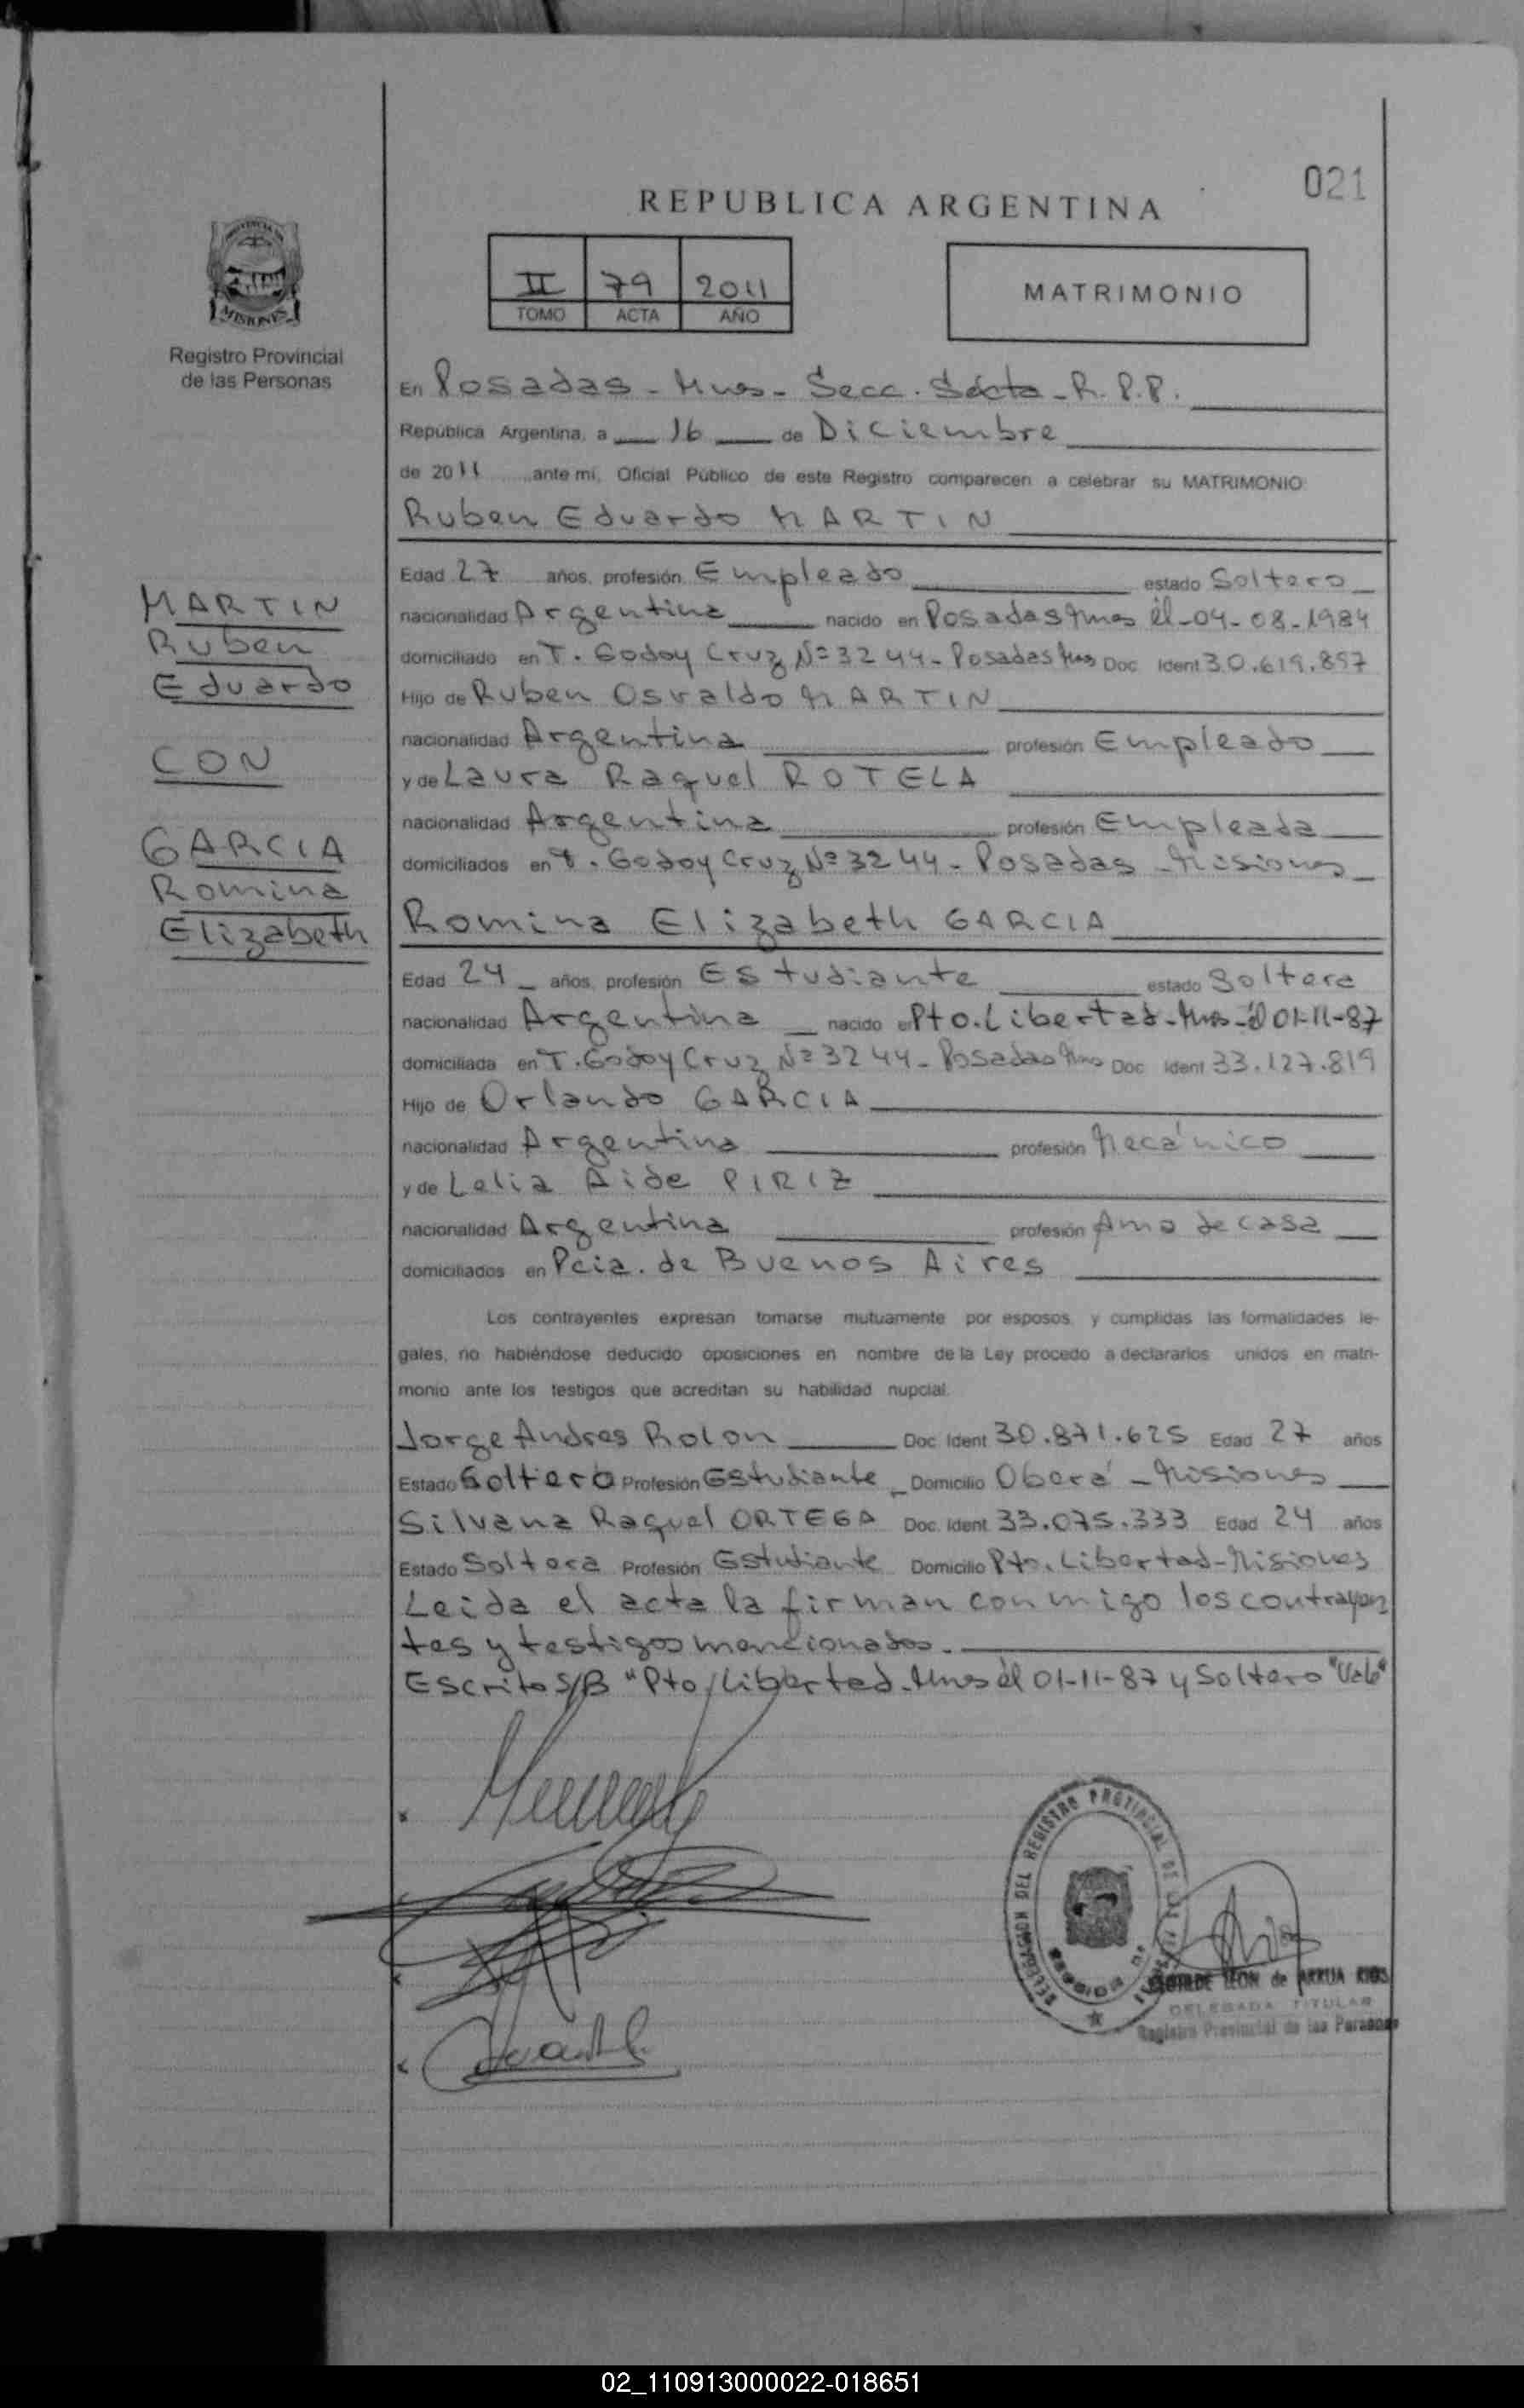 021
REPUBLICA ARGENTINA
PROVINCIA DE
MISIONES
Registro Provincial
de las Personas
II 79 2011
TOMO ACTA AÑO
MATRIMONIO
En Posadas - Mnes - Secc. Sexta - R.P.P.
República Argentina, a 16 de Diciembre
de 2011 ante mí, Oficial Público de este Registro comparecen a celebrar su MATRIMONIO
Ruben Eduardo MARTIN
Edad 27 años, profesión Empleado estado Soltero
nacionalidad Argentina nacido en Posadas Mnes él-04-08-1984
domiciliado en T. Godoy Cruz Nº 3244 - Posadas Mnes Doc Ident 30.619.857
Hijo de Ruben Osvaldo MARTIN
nacionalidad Argentina profesión Empleado
y de Laura Raquel ROTELA
nacionalidad Argentina profesión Empleada
domiciliados en T. Godoy Cruz Nº 3244 - Posadas - Misiones
MARTIN
Ruben
Eduardo
CON
GARCIA
Romina
Elizabeth
Romina Elizabeth GARCIA
Edad 24 años, profesión Estudiante estado Soltera
nacionalidad Argentina nacido en Pto. Libertad - Mnes - él 01-11-87
domiciliada en T. Godoy Cruz Nº 3244 - Posadas Mnes Doc Ident 33.127.819
Hijo de Orlando GARCIA
nacionalidad Argentina profesión Mecánico
y de Lelia Aide PIRIZ
nacionalidad Argentina profesión Ama de casa
domiciliados en Pcia. de Buenos Aires
Los contrayentes expresan tomarse mutuamente por esposos, y cumplidas las formalidades le-
gales, no habiéndose deducido oposiciones en nombre de la Ley procedo a declararlos unidos en matri-
monio ante los testigos que acreditan su habilidad nupcial.
Jorge Andres Rolon Doc. Ident 30.871.625 Edad 27 años
Estado Soltero Profesión Estudiante Domicilio Oberá - Misiones
Silvana Raquel ORTEGA Doc. Ident 33.075.333 Edad 24 años
Estado Soltera Profesión Estudiante Domicilio Pto. Libertad - Misiones
Leida el acta la firman con migo los contrayen
tes y testigos mencionados.
Escrito S/B "Pto. Libertad - Mnes él 01-11-87 y Soltero "Vale"
DELEGACION DEL REGISTRO PROVINCIAL DE
LEON de ARRUA RIOS
DELEGADA TITULAR
Registro Provincial de las Personas
02_110913000022-018651